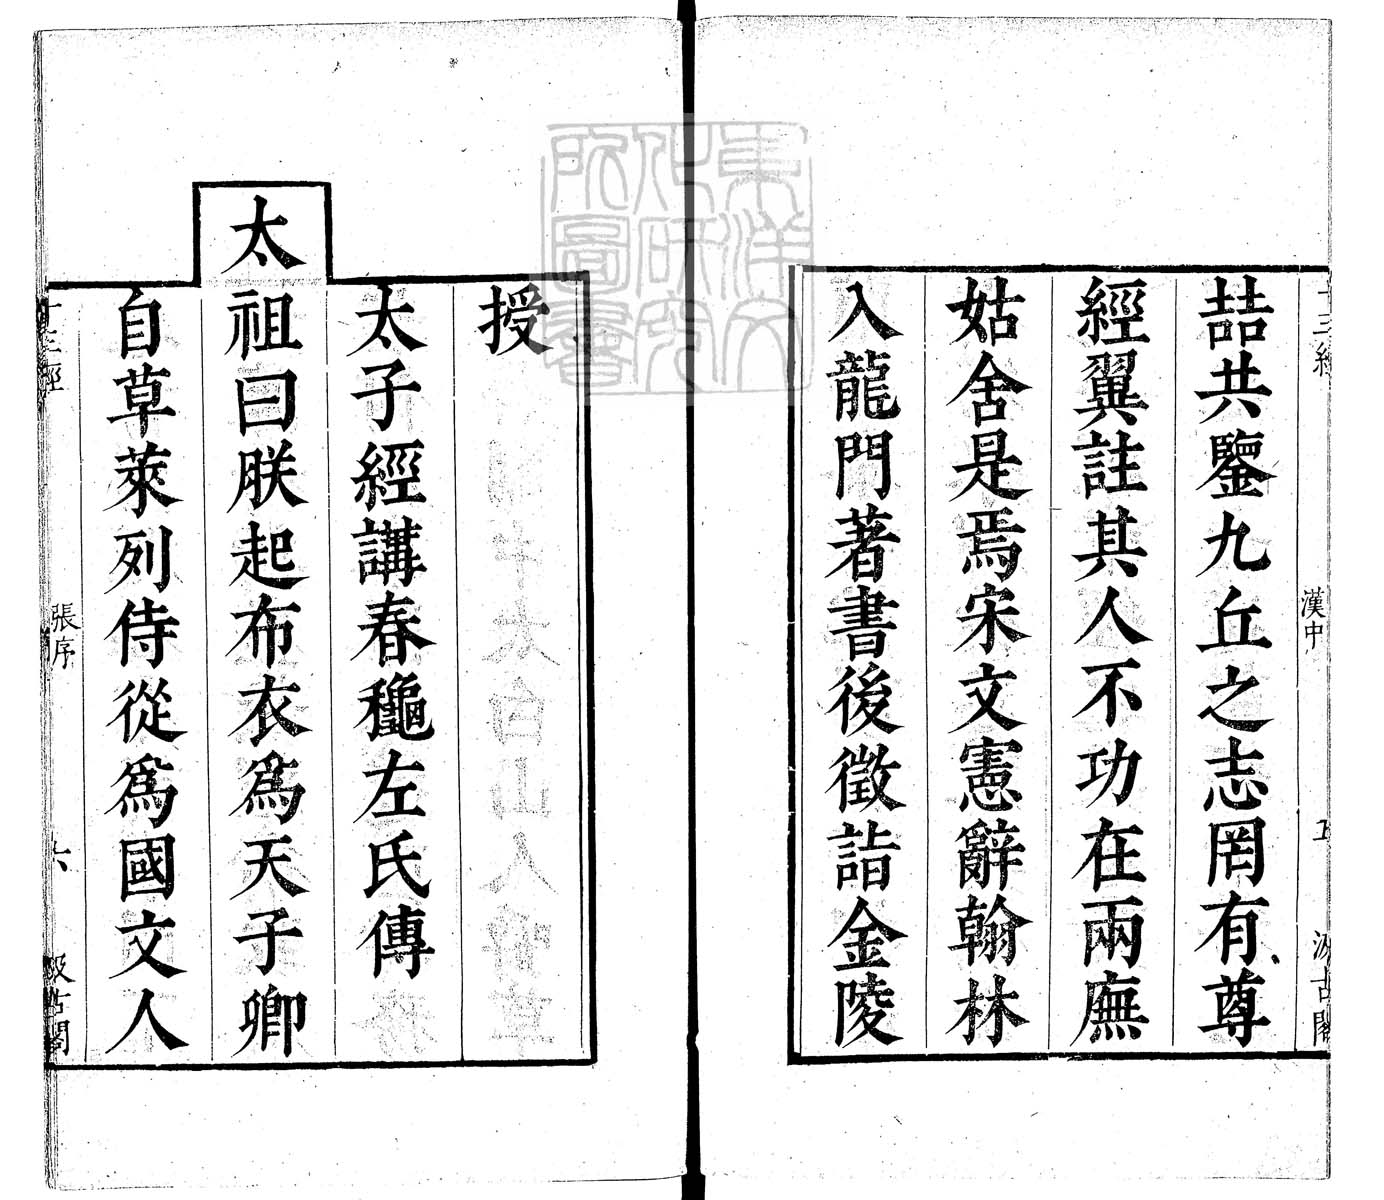 十三經
漢中
五
汲古閣
喆共鑒九丘之志罔有尊
經翼註其人不功在兩廡
姑舍是焉宋文憲辭翰林
入龍門著書後徵詣金陵
授
太子經講春龝左氏傳
太祖曰朕起布衣爲天子卿
自草萊列侍從爲國文人
十三經
張序
六
汲古閣
東洋文
化研究
所圖書